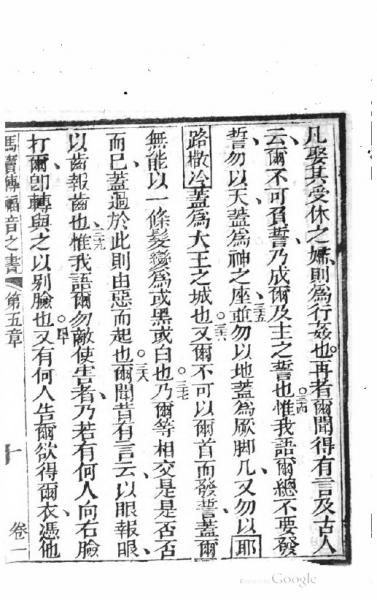 凡娶其受休之婦則為行姦也再者爾聞得有言及古人
云爾不可負誓乃成爾及主之誓也三四惟我語爾總不要發
誓勿以天蓋為神之座三五並勿以地蓋為厥脚几又勿以耶
路撒冷蓋為大王之城也三六又爾不可以爾首而發誓蓋爾
無能以一條髮變為或黑或白也三七乃爾等相交是是否否
而已蓋過於此則由惡而起也三八爾聞昔有言云以眼報眼
以齒報齒也三九惟我語爾勿敵使害者乃若有何人向右臉
打爾即轉與之以別臉也四十又有何人告爾欲得爾衣憑他
馬竇傳福音之書 第五章 十 卷一
Google